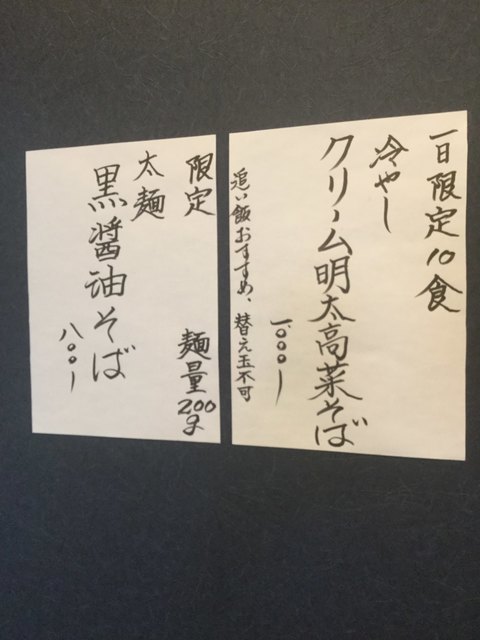 一日限定10食
冷やし
クリーム明太高菜そば
一.〇〇〇ー
追い飯おすすめ、替え玉不可
限定
麺量200g
太麺
黒醤油そば
八〇〇ー